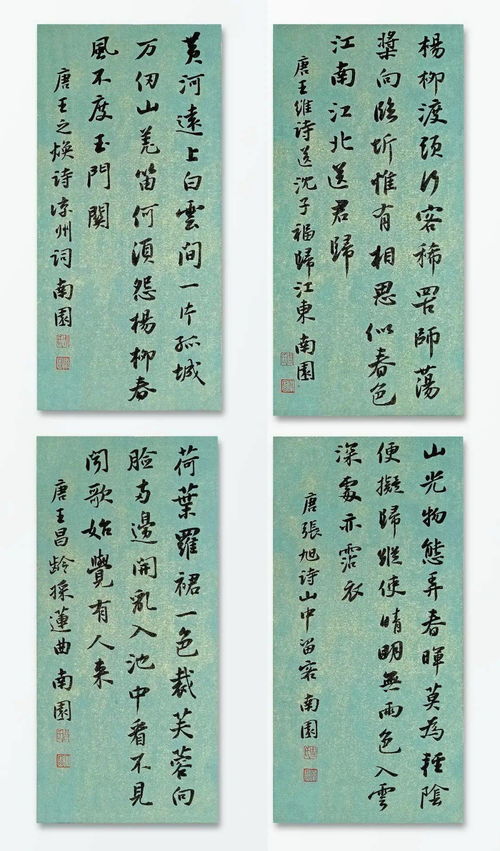 楊柳渡頭行客稀罟師蕩
槳向臨圻惟有相思似春色
江南江北送君歸
唐王維詩送沈子福歸江東南園
黃河遠上白雲間一片孤城
万仞山羌笛何須怨楊柳春
風不度玉門關
唐王之煥詩涼州詞南園
山光物態弄春暉莫為輕陰
便擬歸縱使晴明無雨色入雲
深處亦霑衣
唐張旭詩山中留客南園
荷葉羅裙一色裁芙蓉向
臉兩邊開亂入池中看不見
聞歌始覺有人来
唐王昌齡採蓮曲南園